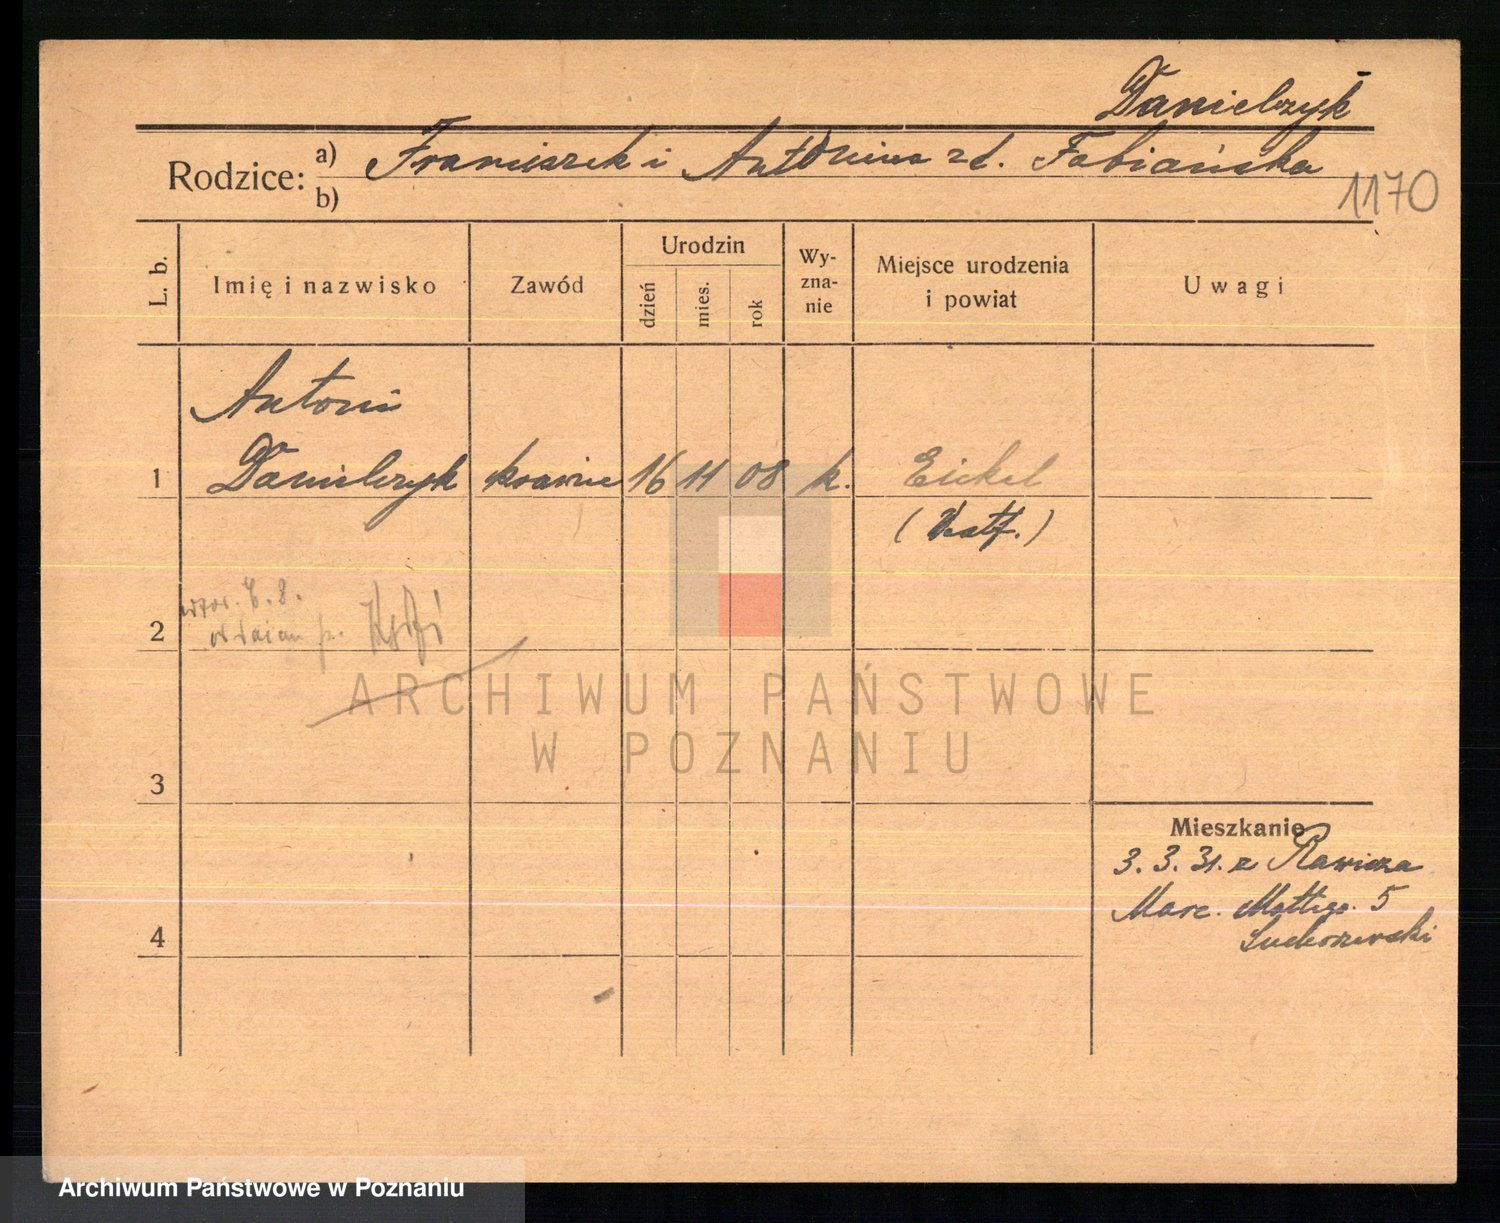 Danielczyk
Rodzice: a) Franciszek i Antonina zd. Fabiańska
b)
1170
L. b.
Imię i nazwisko
Zawód
Urodzin
dzień
mies.
rok
Wy-
zna-
nie
Miejsce urodzenia
i powiat
Uwagi
Antoni
1 Danielczyk krawiec 16 11 08 k. Eickel
(Westf.)
2
3
Mieszkanie
3. 3. 31. z Rawicza
Marc. Mottego. 5
Suchorzewski
4
ARCHIWUM PAŃSTWOWE
W POZNANIU
Archiwum Państwowe w Poznaniu